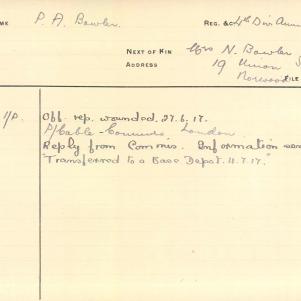 ME P. A. Bowler. REG. & C 4th Div. Amm
NEXT OF KIN Mrs N. Bowler
ADDRESS 19 Union S
Norwood FILE
/P. Off. rep. wounded. 27.6.17.
P/Cable - Commrs. London.
Reply from Commis. Information
"Transferred to a Base Depot. 11.7.17."